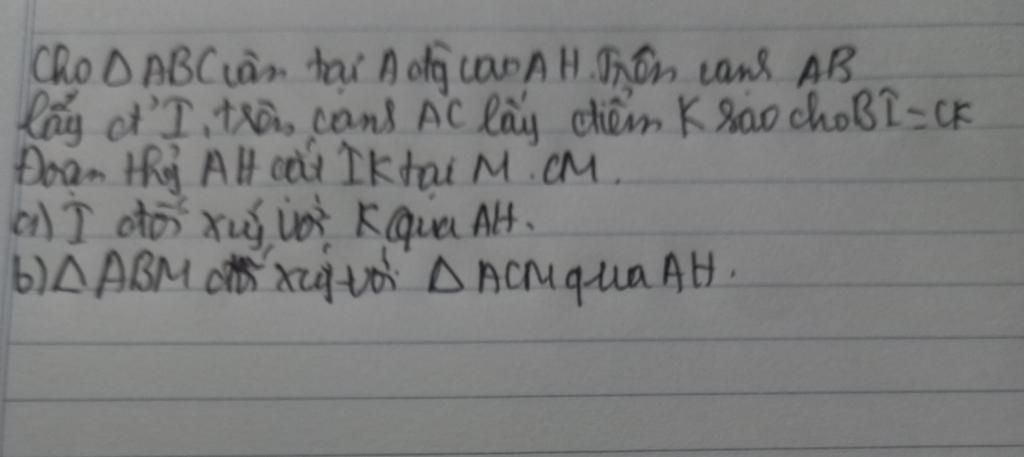 Cho Δ ABC cân tại A đg cao AH. Trên cạnh AB
lấy đ' I, trên cạnh AC lấy điểm K sao cho BI = CK
Đoạn thg AH cắt IK tại M. CM.
a) I đối xứg với K qua AH.
b) Δ ABM đối xứg với Δ ACM qua AH.